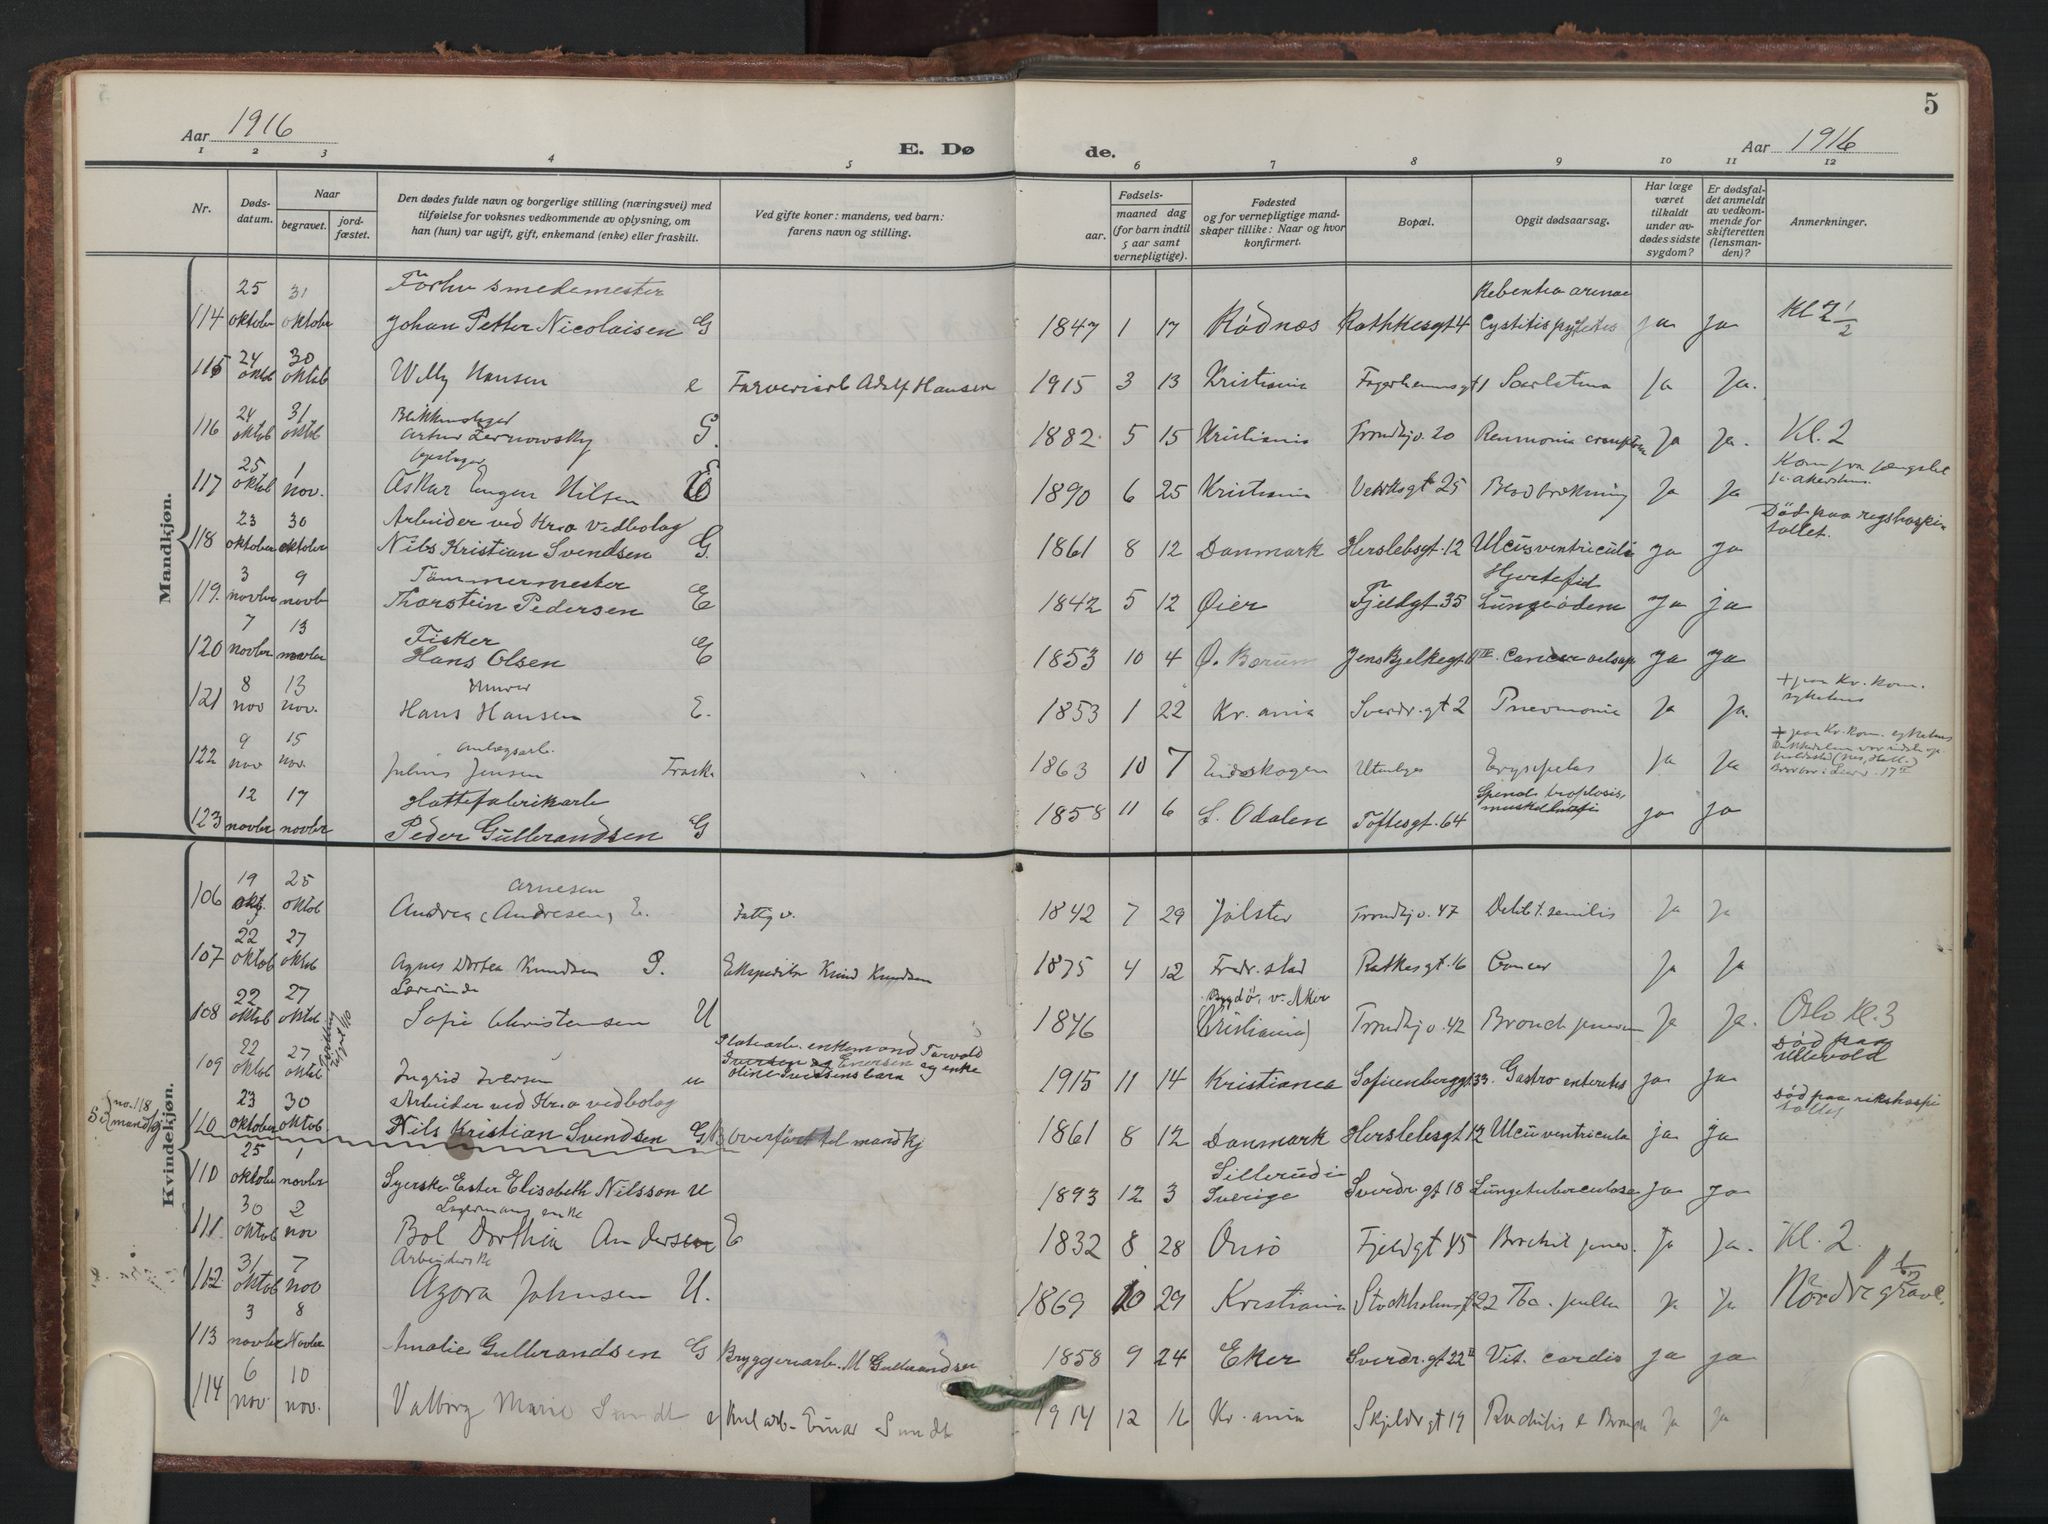 5
Aar 1916
E. Dø de.
Aar 1916
1 2 3 4 5 6 7 8 9 10 11 12
Nr.
Døds-
datum.
Naar
begravet.
jord-
fæstet.
Den dødes fulde navn og borgerlige stilling (næringsvei) med
tilføielse for voksnes vedkommende av oplysning, om
han (hun) var ugift, gift, enkemand (enke) eller fraskilt.
Ved gifte koner: mandens, ved barn:
farens navn og stilling.
Fødsels-
aar.
maaned dag
(for barn indtil
5 aar samt
vernepligtige).
Fødested
og for vernepligtige mand-
skaper tillike: Naar og hvor
konfirmert.
Bopæl.
Opgit dødsaarsag.
Har læge
været
tilkaldt
under av-
dødes sidste
sygdom?
Er dødsfal-
det anmeldt
av vedkom-
mende for
skifteretten
(lensman-
den)?
Anmerkninger.
Mandkjøn.
25 31 Forhv smedemester
114 oktober oktober Johan Petter Nicolaisen G 1847 1 17 Rødnæs Rathkesgt 4 Cystitis ja ja Kl 2 1/2
24 30
115 oktob oktob Willy Hansen e Farveriarb Adolf Hansen 1915 3 13 Kristiania Fagerheimsgt 1 Scarlatina Ja Ja.
24 31 Blikkenslager
116 oktob oktob Artur G. 1882 5 15 Kristiania Trondhj v. 20 Ja Ja. Kl. 2
25 1
117 oktob nov. Oskar Eugen Nilsen E 1890 6 25 Kristiania 25 Blodbrækning Ja Ja
23 30 Arbeider ved Kr.a Vedbolag Død paa rigshospi-
talet.
118 oktober oktober Nils Kristian Svendsen G. 1861 8 12 Danmark Herslebsgt. 12 Ulcus ventriculi ja ja
3 9 Tømmermester Hjertefeil
119. novber novbr Thorstein Pedersen E 1842 5 12 Øier Fjeldgt 35 Lungeødem ja ja
7 13 Fisker
120 novber novber Hans Olsen E 1853 10 4 Ø. Bærum Jens Bjelkesgt 11 IV. Cancer ja ja
8 13 Murer + paa Kr. kom.
sykehus
121 nov nov. Hans Hansen E. 1853 1 22 Kr.ania Sverdr. gt 2 Pnevmonia Ja Ja.
9 15 anlægsarb. + paa Kr. kom. sykehus
122 nov nov. Julius Jensen Frask. 1863 10 7 Eidskogen Erysipelas Ja Ja
12 17 Hattefabrikarb
123 novber novber Peder Gulbrandsen G 1858 11 6 S. Odalen Toftesgt. 64 ja ja
Kvindekjøn.
19 25 Arnesen
106 okt. oktob Andrea (Andresen) E. Fattig v. 1842 7 29 Jølster Trondhj v. 47 Debil. senilis Ja Ja
22 27
107 oktob oktob Agnes Dortea Knudsen G. Ekspeditør Knud Knudsen 1875 4 12 Fredr.stad Ratkesgt. 16 Cancer Ja Ja
22 27 Lærerinde Bygdø, v. Aker
108 oktob oktob Sofie Christensen U 1846 (Kristiania) Trondhj v. 42 Ja Ja. Oslo Kl. 3
22 27 enkemand Torvald Død paa
Ullevold
109 oktob oktob Ingrid Iversen u Iversen og enke
Oline barn 1915 11 14 Kristiania Sofienberggt. 33. Gastro enterites ja ja
23 30 Arbeider ved Kr.a vedbolag Død paa rikshospi
talet
Se no. 118 mandkj
110 oktober oktob. Nils Kristian Svendsen G Overført til mandkj 1861 8 12 Danmark Herslebsgt 12 Ulcus ventricula ja ja
25 1 Sillerud i
110 oktober novber Syerske Ester Elisabeth Nilsson U 1893 12 3 Sverige Sverdr gt 18 Lungetuberculose ja ja
30 2 enke
111. oktob nov Bol Dorthia Andersen E 1832 8 28 Onsø Fjeldgt 45 Ja Ja. Kl. 2.
31 7 Arbeiderske
112 oktob nov Agora Johnsen U. 1869 10 29 Kristiania Stockholmsgt 22 Tbc. pulm Ja Ja Nordre gravl.
3 8
113 novber Novber Amalie Gulbrandsen G Bryggeriarb. M Gulbrandsen 1858 9 24 Eker Sverdr. gt 22 II Vit. cordis ja ja
6 10
114 nov. nov. Valborg Marie Sundt e Kularb. Einar Sundt 1914 12 16 Kr.ania Skjeldr gt 19 Rachitis Ja Ja